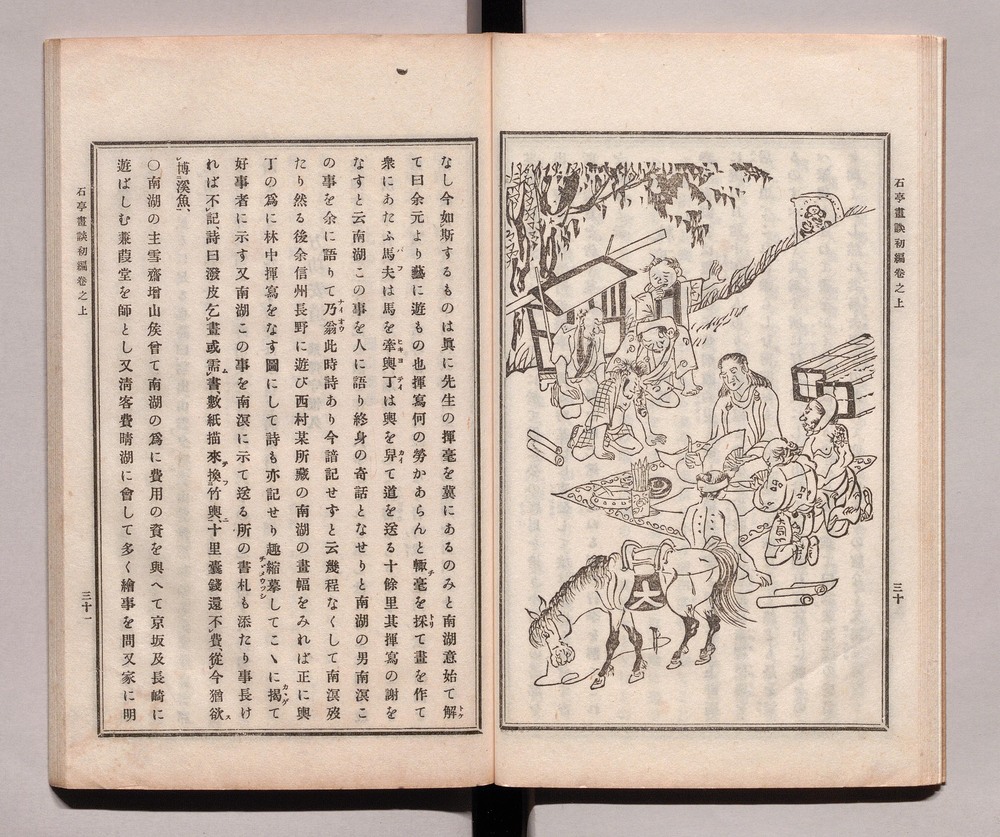 石亭畫談初編卷之上
三十
大
なし今如斯するものは眞に先生の揮毫を冀にあるのみと南湖意始て解
て曰余元より藝に遊もの也揮寫何の勞かあらんと輙毫を採て畫を作て
衆にあたふ馬夫は馬を牽輿丁は輿を舁て道を送る十餘里其揮寫の謝を
なすと云南湖この事を人に語り終身の奇話となせりと南湖の男南溟こ
の事を余に語りて乃翁此時詩あり今諳記せずと云幾程なくして南溟歿
たり然る後余信州長野に遊び西村某所藏の南湖の畫幅をみれば正に輿
丁の爲に林中揮寫をなす圖にして詩も亦記せり趣縮摹してこゝに揭て
好事者に示す又南湖この事を南溟に示て送る所の書札も添たり事長け
れば不記、詩曰潑皮乞畫或需書數紙描來換竹輿、十里囊錢還不費、從今猶欲
博溪魚、
〇南湖の主雪齋增山侯曾て南湖の爲に費用の資を與へて京坂及長崎に
遊ばしむ蒹葭堂を師とし又清客費晴湖に會して多く繪事を問又家に明
石亭畫談初編卷之上
三十一